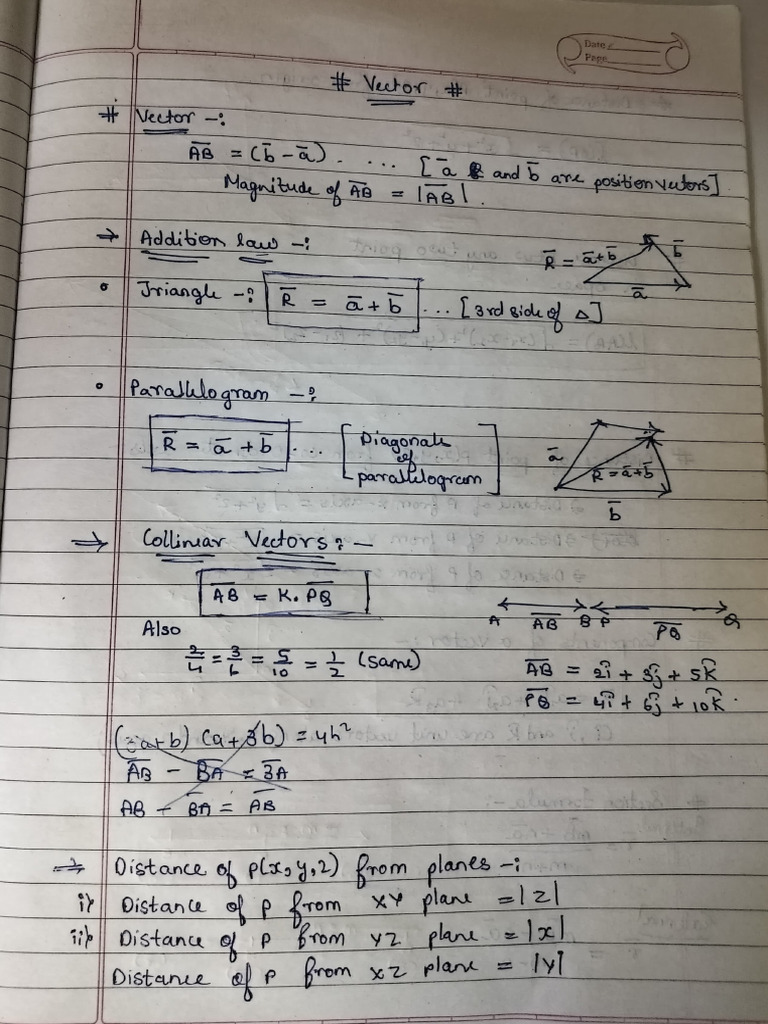 Date
Page
# Vector #
# Vector -:
A̅B̅ = (b̅ - a̅). ... [a̅ & and b̅ are position vectors]
Magnitude of A̅B̅ = |A̅B̅|.
→ Addition law -:
R̅ = a̅+b̅
b̅
a̅
• Triangle -: R̅ = a̅ + b̅ ... [3rd side of Δ]
• Parallelogram -:
R̅ = a̅ + b̅ ... [Diagonal of parallelogram]
a̅
R̅ = a̅+b̅
b̅
⇒ Collinear Vectors: -
A̅B̅ = K. P̅Q̅
A A̅B̅ B P P̅Q̅ Q
Also
2/4 = 3/6 = 5/10 = 1/2 (same)
A̅B̅ = 2î + 3ĵ + 5k̂
P̅Q̅ = 4î + 6ĵ + 10k̂.
(3a+b) (a+3b) = 4h²
A̅B̅ - B̅A̅ = B̅A̅
AB - B̅A̅ = A̅B̅
⇒ Distance of p(x, y, z) from planes -:
i) Distance of P from XY plane = |z|
ii) Distance of P from YZ plane = |x|
Distance of P from XZ plane = |y|